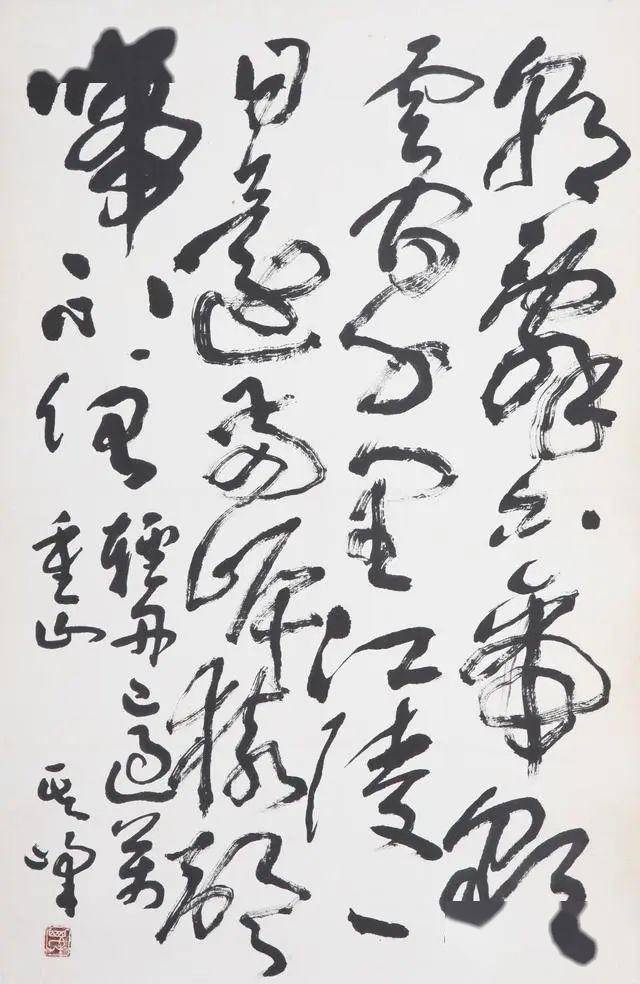 朝辭白帝彩
云間千里江陵一
日還两岸猿聲
啼不住輕舟已過萬
重山
其峰